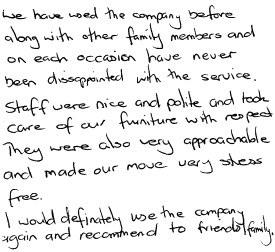 We have used the company before
along with other family members and
on each occasion have never
been dissappointed with the service.
Staff were nice and polite and took
care of our furniture with respect
They were also very approachable
and made our move very stress
free.
I would definately use the company
again and recommend to friends/family.